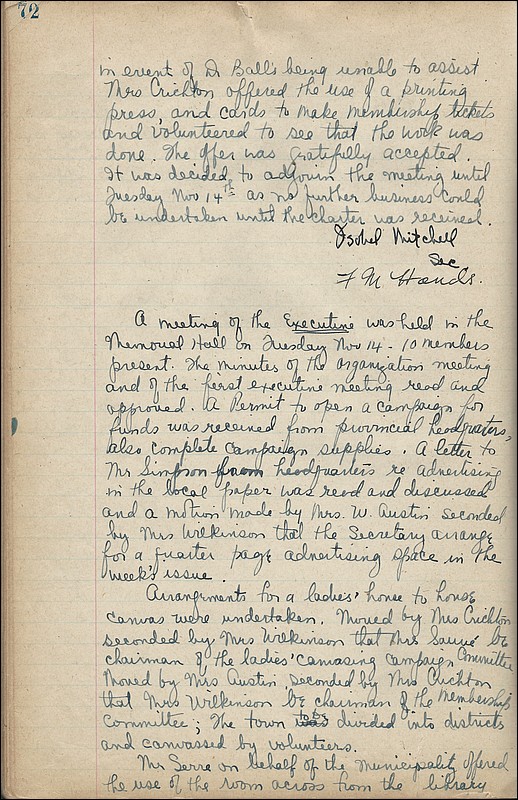 72
in event of Dr Ball's being unable to assist
Mrs Crichton offered the use of a printing
press, and cards to make membership tickets
and volunteered to see that the work was
done. The offer was gratefully accepted.
It was decided to adjourn the meeting until
Tuesday Nov 14th as no further business could
be undertaken until the charter was received.
Isobel Mitchell
Sec
F M Hands.
A meeting of the Executive was held in the
Memorial Hall on Tuesday Nov 14 - 10 members
present. The minutes of the organization meeting
and of the first executive meeting read and
approved. A Permit to open a campaign for
funds was received from provincial headquarters,
also complete campaign supplies. A letter to
Mr Simpson from headquarters re advertising
in the local paper was read and discussed
and a motion made by Mrs. W. Austin seconded
by Mrs Wilkinson that the Secretary arrange
for a quarter page advertising space in the
week's issue.
Arrangements for a ladies' house to house
canvas were undertaken. Moved by Mrs Crichton
seconded by Mrs Wilkinson that Mrs Sauvé be
chairman of the ladies' canvasing campaign Committee
Moved by Mrs Austin seconded by Mrs Crichton
that Mrs Wilkinson be chairman of the membership
committee; The town to be divided into districts
and canvassed by volunteers.
Mr Serre on behalf of the Municipality offered
the use of the room across from the library